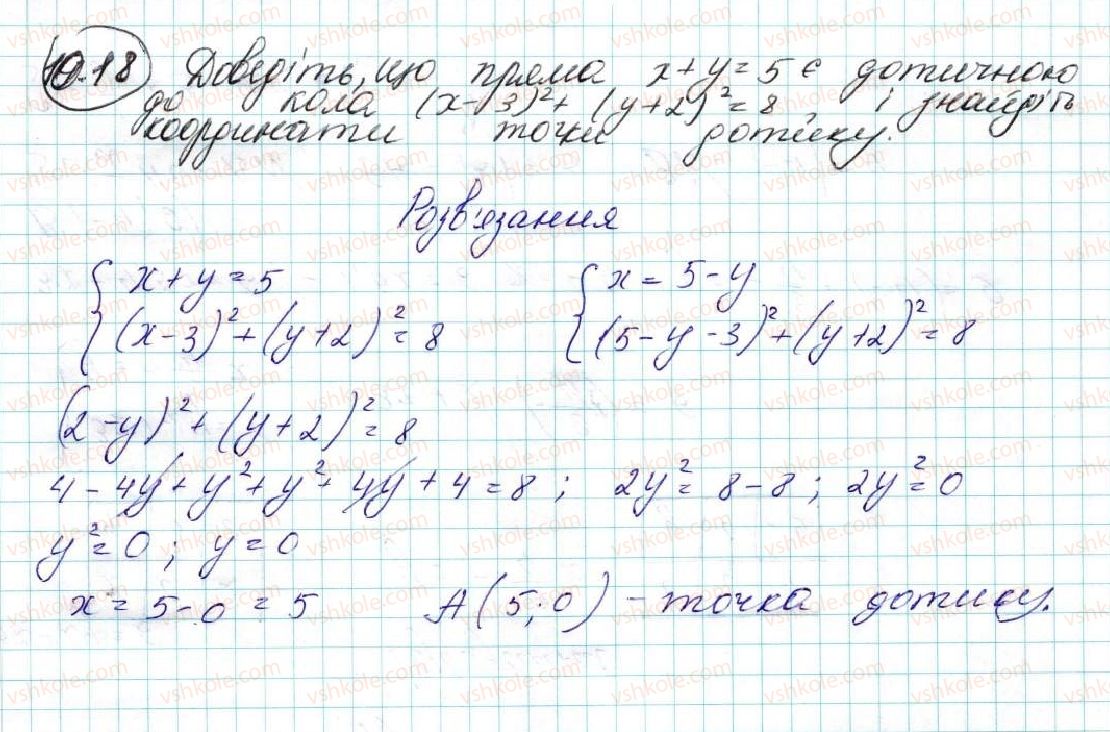 10.18 Доведіть, що пряма x+y=5 є дотичною
до кола (x-3)²+(y+2)²=8, і знайдіть
координати точки дотику.
Розв'язання
{ x+y=5
(x-3)²+(y+2)²=8
{ x=5-y
(5-y-3)²+(y+2)²=8
(2-y)²+(y+2)²=8
4-4y+y²+y²+4y+4=8; 2y²=8-8; 2y²=0
y²=0; y=0
x=5-0=5 A(5;0) - точка дотику.